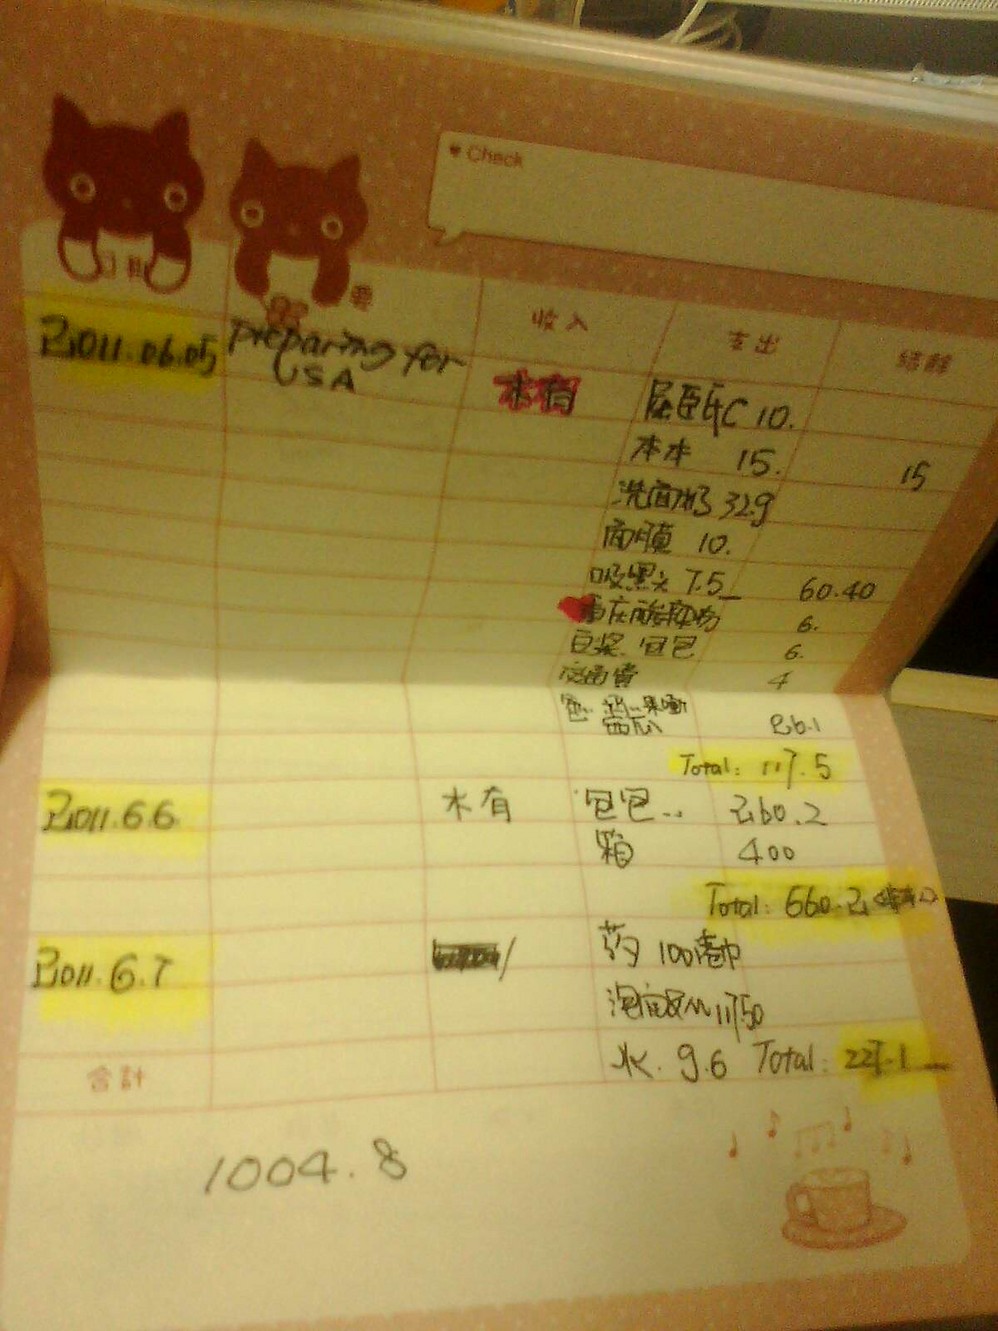 Check
要 收入 支出 結餘
2011.06.05 Preparing for 木有 屈臣氏C 10.
USA
本本 15. 15
洗面奶 32.9
面膜 10.
吸黑头 7.5 60.40
重庆酸辣粉 6.
豆浆 包包 6.
4
西瓜 26.1
Total: 117.5
2011.6.6 木有 包包.. 260.2
箱 400
Total: 660.2
2011.6.7 药 100
11750
水. 9.6 Total: 227.1
合計
1004.8